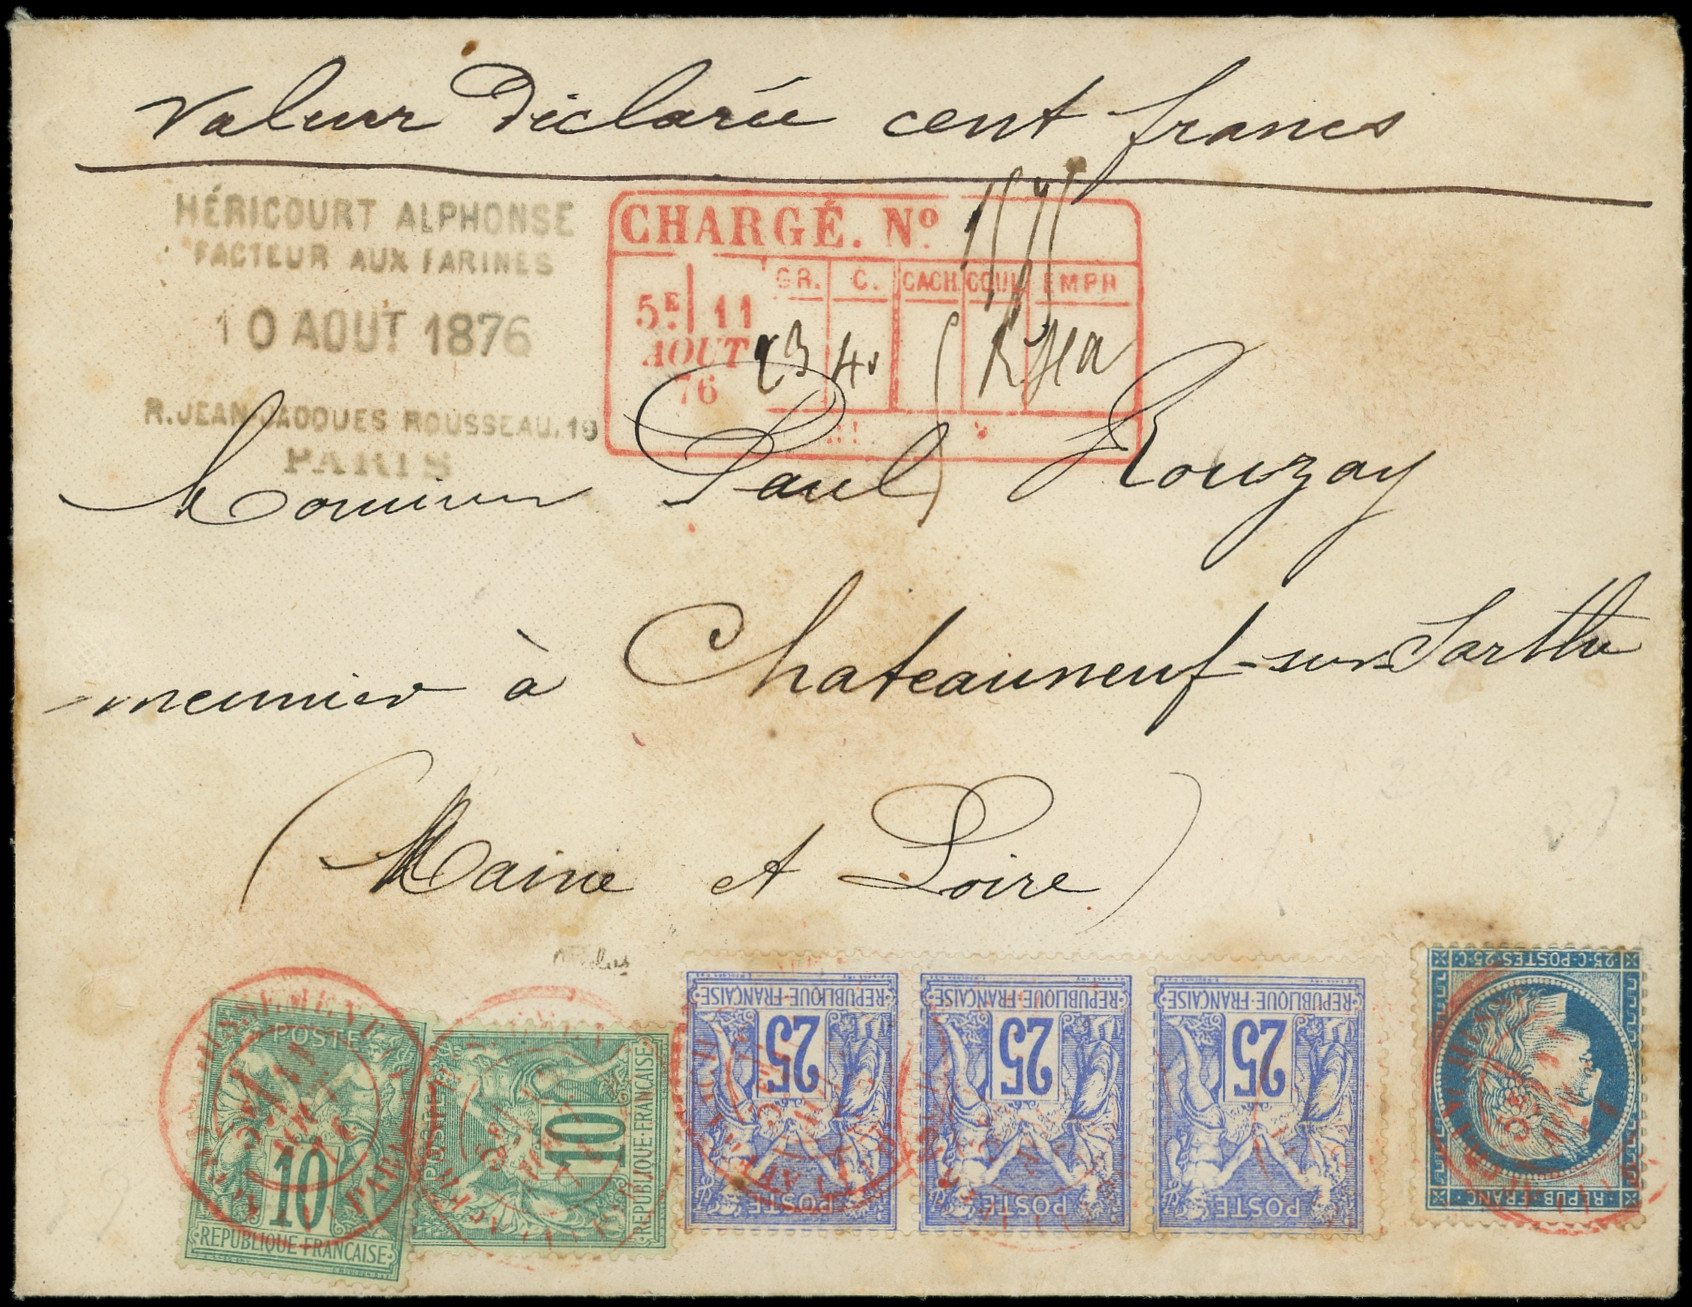 Valeur Déclarée cent francs
HÉRICOURT ALPHONSE
FACTEUR AUX FARINES
10 AOUT 1876
R. JEAN-JACQUES ROUSSEAU, 19
PARIS
CHARGÉ. Nº
GR. C. CACH. COUL EMPR
5E 11
AOUT
76
23 40
Monsieur Paul Rouzay
meunier à Chateauneuf-sur-Sarthe
(Maine et Loire)
POSTE
10
RÉPUBLIQUE-FRANÇAISE
POSTE
10
RÉPUBLIQUE-FRANÇAISE
POSTE
25
RÉPUBLIQUE-FRANÇAISE
POSTE
25
RÉPUBLIQUE-FRANÇAISE
POSTE
25
RÉPUBLIQUE-FRANÇAISE
REPUB·FRANC
25·C·POSTES·25·C